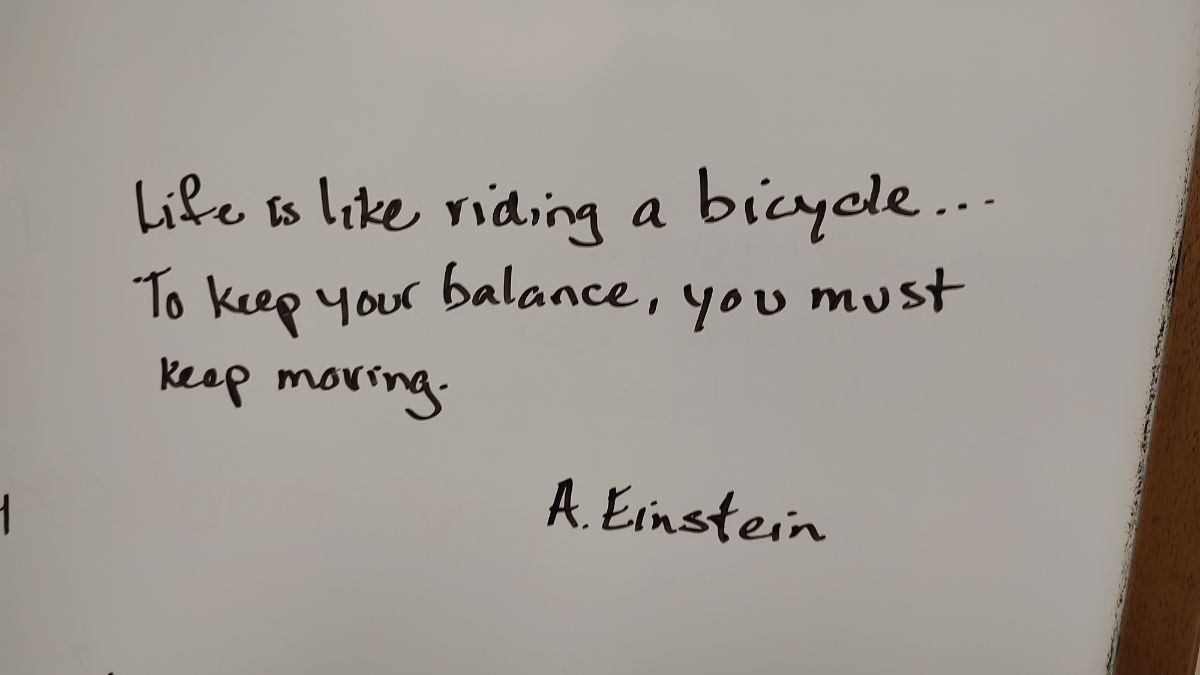 Life is like riding a bicycle...
To keep your balance, you must
keep moving.
A. Einstein